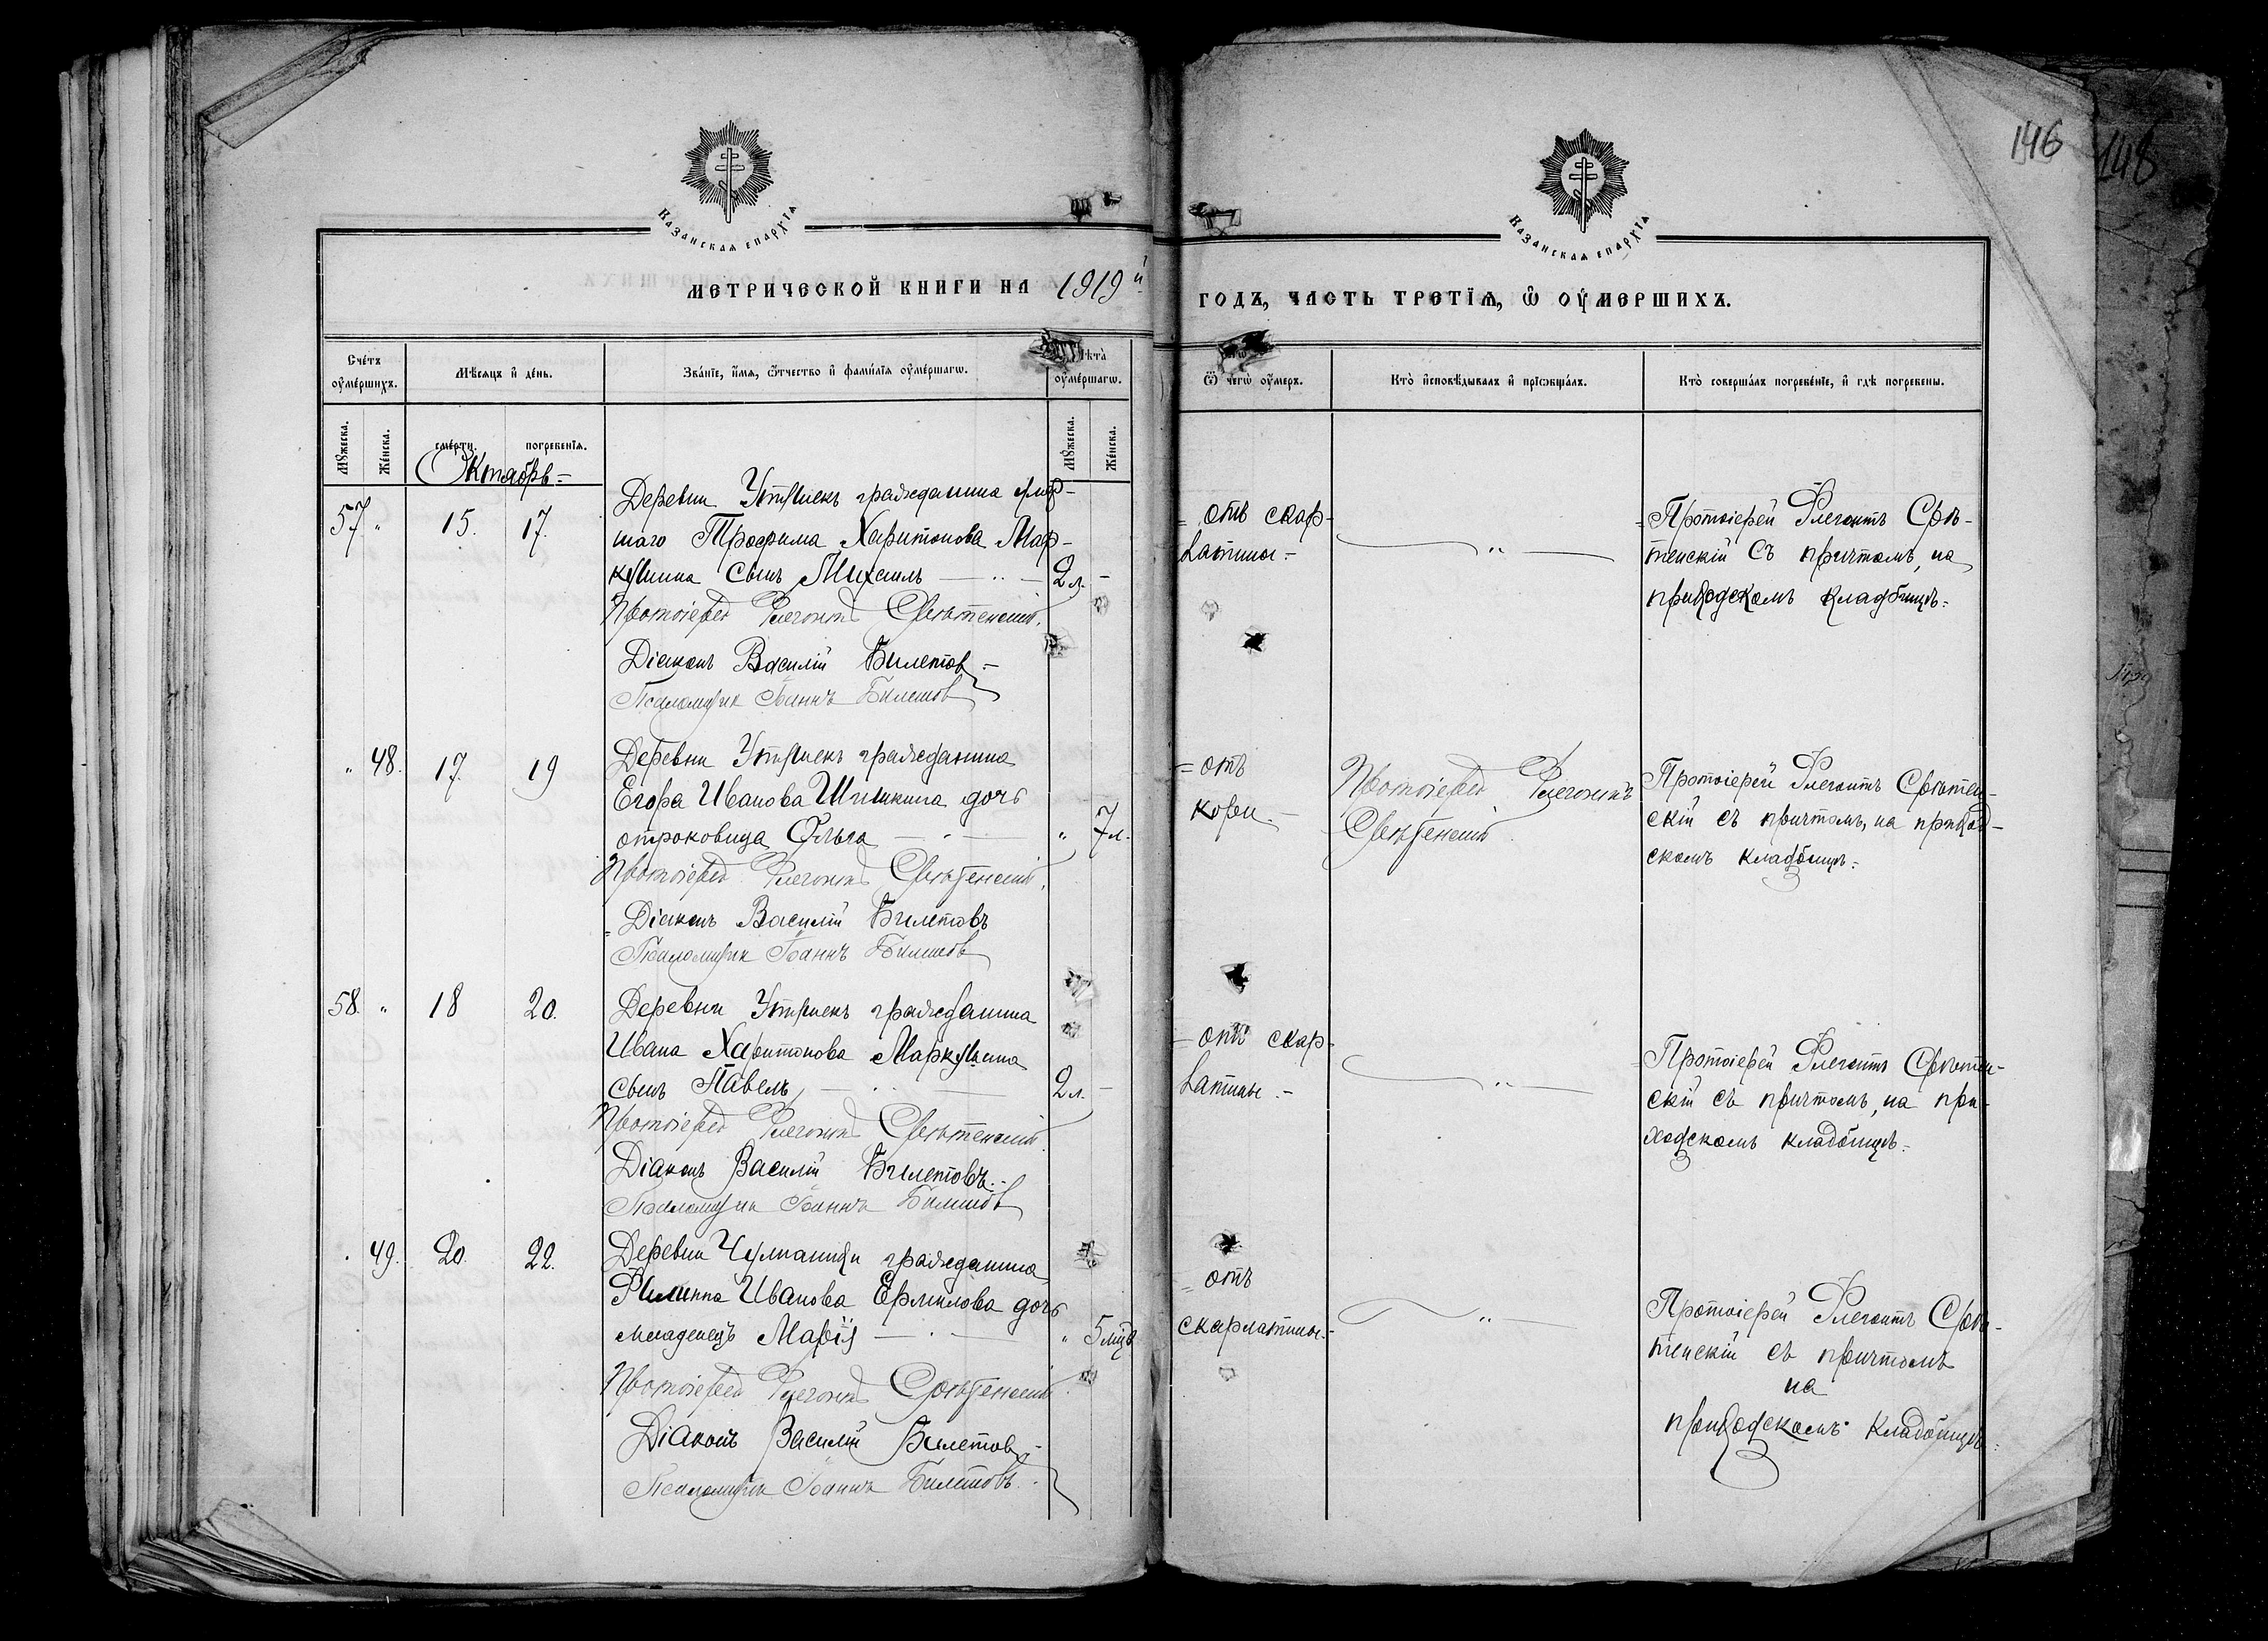 146
148
КАЗАНСКАѦ ЕПАРХІѦ
КАЗАНСКАѦ ЕПАРХІѦ
МЕТРИЧЕСКОЙ КНИГИ НА 1919й
ГОДЪ, ЧАСТЬ ТРЕТІѦ, Ѡ ОУМЕРШИХЪ.
Счетъ оумершихъ.
Мѣсяцъ и день.
Званіе, имя, отчество и фамилія оумершагѡ.
Лѣта оумершагѡ.
Ѿ чегѡ оумеръ.
Кто исповѣдывалъ и пріѡбщалъ.
Кто совершалъ погребеніе, и гдѣ погребены.
Мꙋжеска.
Женска.
смерти.
погребенія.
Мꙋжеска.
Женска.
Октябрь =
57 „ 15. 17.
Деревни Утяшекъ гражданина
шаго Трофима Харитонова Мар-
кушина сынъ Михаилъ — 2 л. –
Протоіерей Флегонтъ Срѣтенскій.
Діаконъ Василій Билетов –
Псаломщик Іоаннъ Билетов
= отъ скар-
латины. –
— „ —
= Протоіерей Флегонтъ Срѣ-
тенскій съ причтомъ, на
приходскомъ кладбищѣ. =
„ 48. 17. 19
Деревни Утяшекъ гражданина
Егора Иванова Шишкина дочь
отроковица Ольга — „ 7 л.
Протоіерей Флегонтъ Срѣтенскій.
Діаконъ Василій Билетовъ
Псаломщик Іоаннъ Билетов
= отъ
кори. –
Протоіерей Флегонтъ
Срѣтенскій
Протоіерей Флегонтъ Срѣтен-
скій съ причтомъ, на приход-
скомъ кладбищѣ. =
58. „ 18 20.
Деревни Утяшекъ гражданина
Ивана Харитонова Маркушина
сынъ Павелъ, — 2 л. –
Протоіерей Флегонтъ Срѣтенскій.
Діаконъ Василій Билетовъ. –
Псаломщик Іоаннъ Билетов
= отъ скар-
латины. –
— „ —
= Протоіерей Флегонтъ Срѣтен-
скій съ причтомъ, на при-
ходскомъ кладбищѣ. –
. 49. 20. 22.
Деревни гражданина
Филиппа Иванова Ермилова дочь
младенецъ Марія — „ 5 мцв
Протоіерей Флегонтъ Срѣтенскій.
Діаконъ Василій Билетов –
Псаломщик Іоаннъ Билетовъ.
= отъ
скарлатины. –
— „ —
Протоіерей Флегонтъ Срѣ-
тенскій съ причтомъ
на
приходскомъ кладбищѣ =